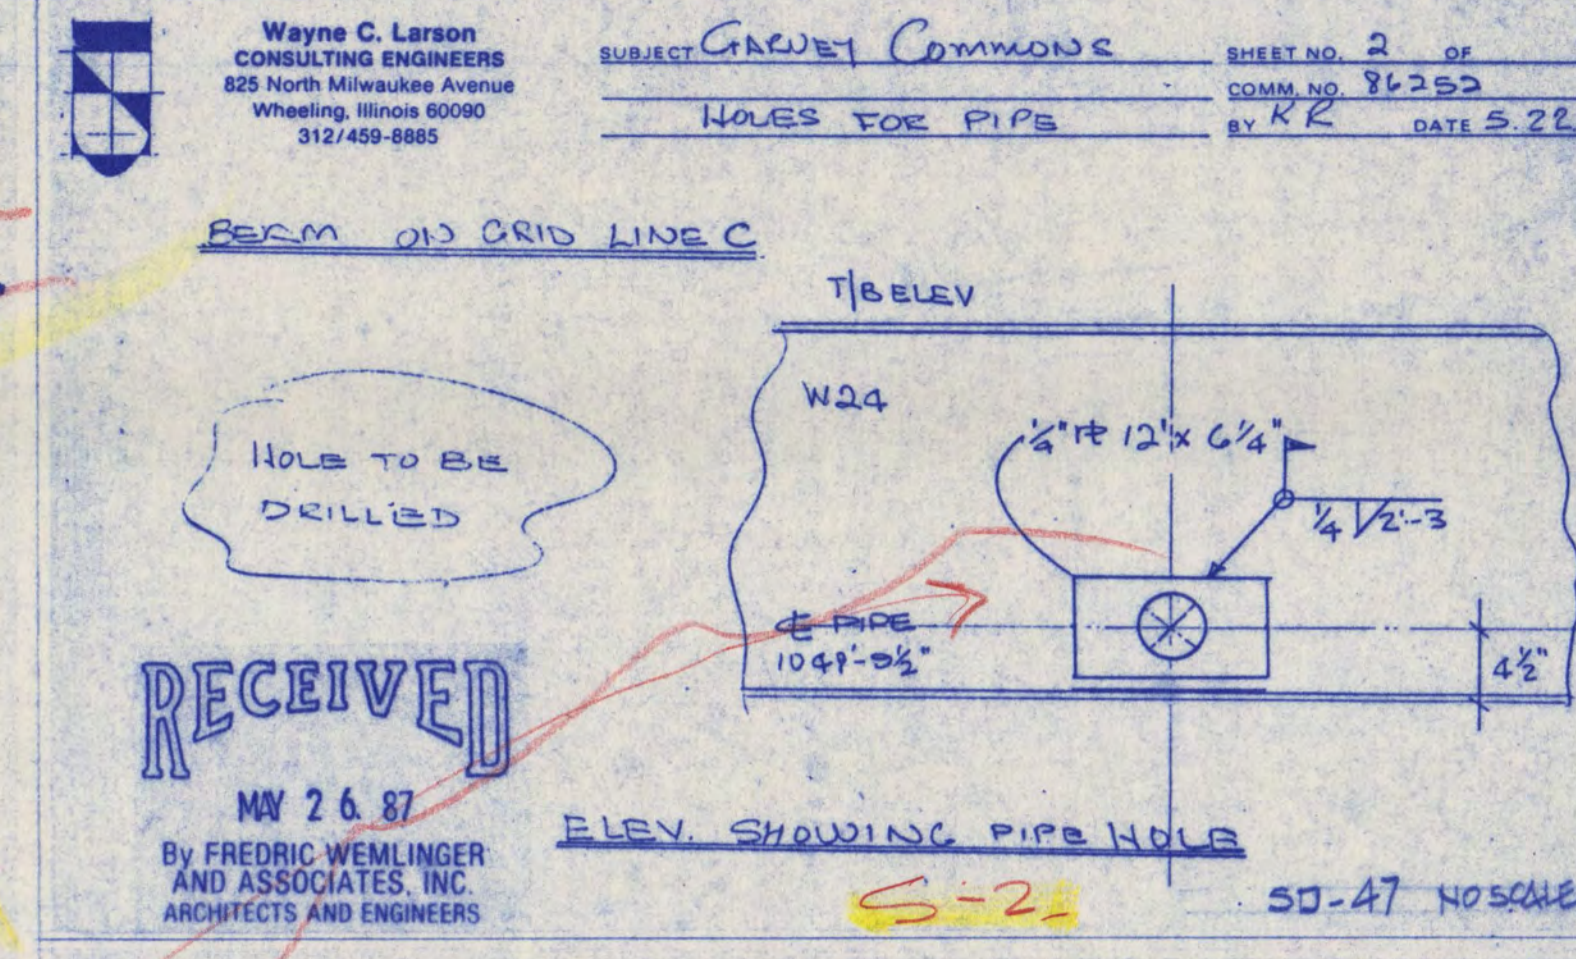 Wayne C. Larson
CONSULTING ENGINEERS
825 North Milwaukee Avenue
Wheeling, Illinois 60090
312/459-8885
SUBJECT GARVEY COMMONS
HOLES FOR PIPE
SHEET NO. 2 OF
COMM. NO. 86252
BY KR DATE 5.22
BEAM ON GRID LINE C
T/B ELEV
W24
1/4" ℞ 12" x 6 1/4"
1/4 2-3
HOLE TO BE
DRILLED
℄ PIPE
4 1/2"
RECEIVED
MAY 26. 87
By FREDRIC WEMLINGER
AND ASSOCIATES, INC.
ARCHITECTS AND ENGINEERS
ELEV. SHOWING PIPE HOLE
S-2
SD-47 NO SCALE